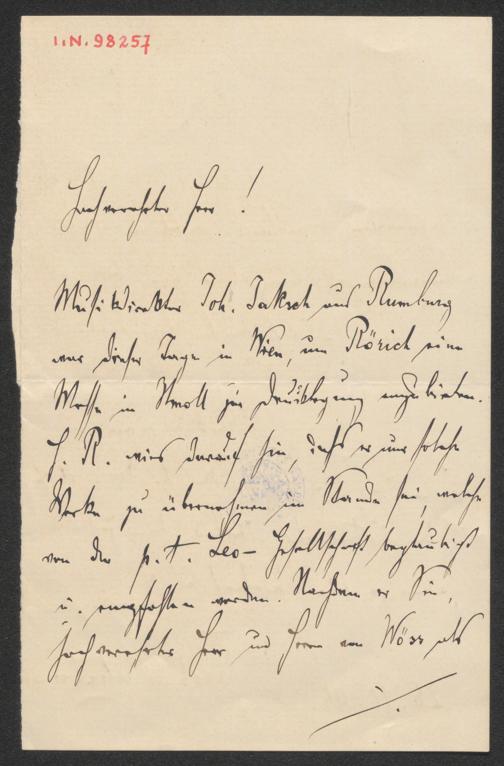 I.N. 98257
Hochverehrter Herr!
Musikdirektor Joh. Jaksch aus Rumburg
war dieser Tage in Wien, um Rörich eine
Messe in Hmoll zur Drucklegung anzubieten.
H. R. wies darauf hin, daß er nur solche
Werke zu übernehmen im Stande sei, welche
von der p. t. Leo-Gesellschaft begutachtet
u. empfohlen werden. Nachdem er Sie,
hochverehrter Herr und Herrn von Wöss als